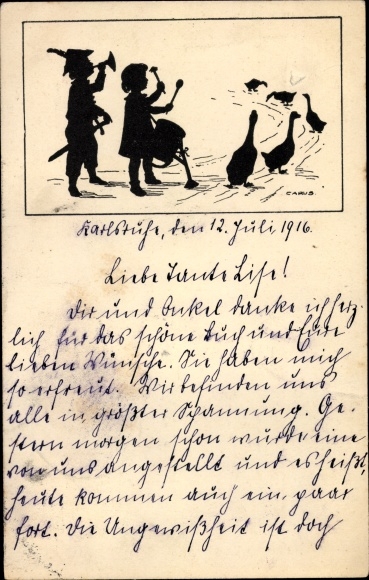 CARUS.
Karlsruhe, den 12. Juli 1916.
Liebe Tante Lise!
Dir und Onkel danke ich herz-
lich für das schöne Buch und Eure
lieben Wünsche. Sie haben mich
so erfreut. Wir befinden uns
alle in größter Spannung. Ge-
stern morgen schon wurde eine
von uns angestellt und es heißt,
heute kommen auch ein paar
fort. Die Ungewißheit ist doch